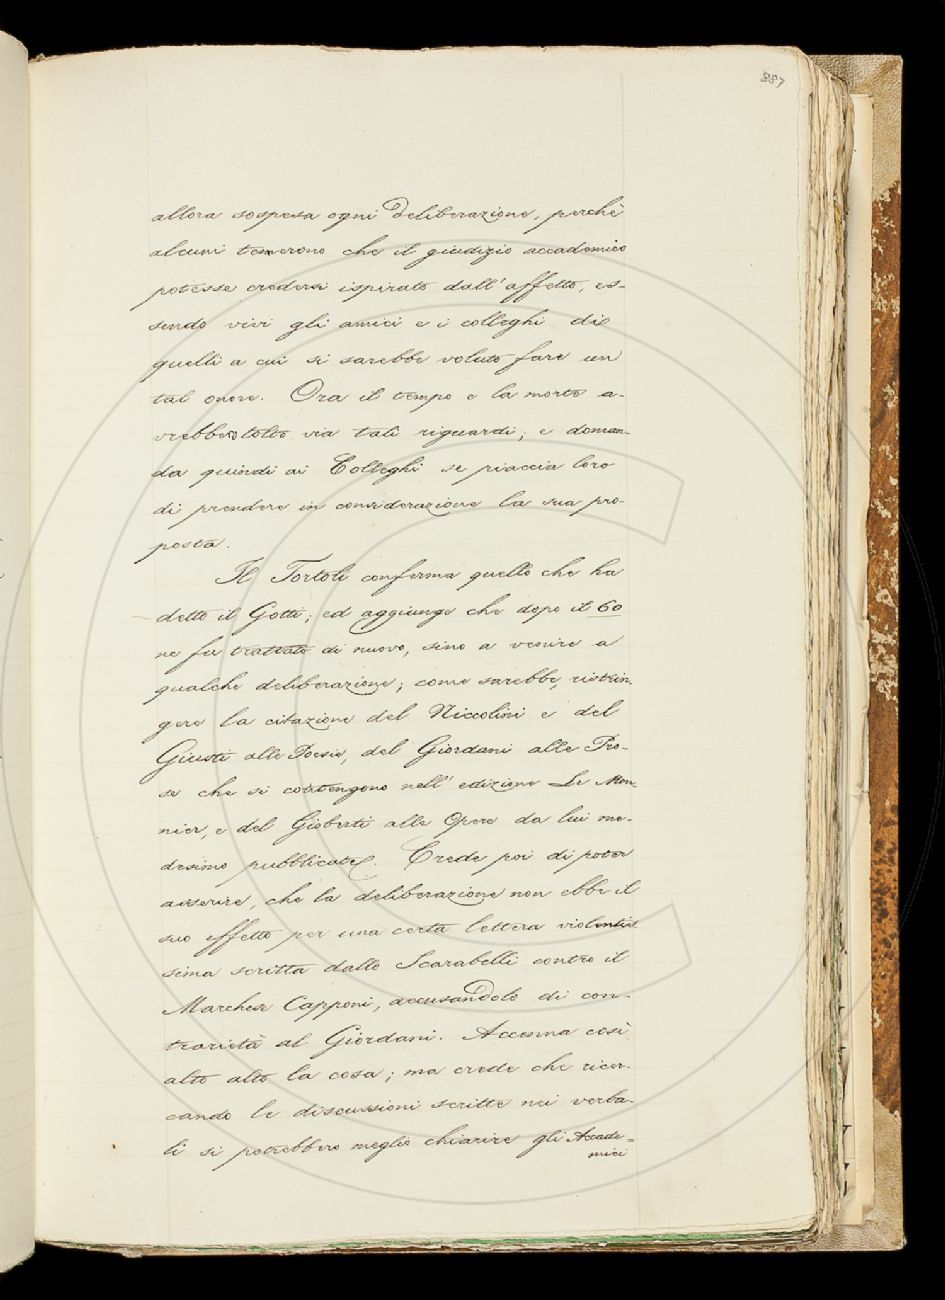 887
allora sospesa ogni deliberazione, perchè
alcuni temerono che il giudizio accademico
potesse credersi ispirato dall'affetto, es-
sendo vivi gli amici e i colleghi di
quelli a cui si sarebbe voluto fare un
tal onore. Ora il tempo e la morte a-
vrebbero tolto via tali riguardi; e doman-
da quindi ai Colleghi se piaccia loro
di prendere in considerazione la sua pro-
posta.
Il Tortoli conferma quello che ha
detto il Gotti; ed aggiunge che dopo il 60
ne fu trattato di nuovo, sino a venire a
qualche deliberazione; come sarebbe, ristrin-
gere la citazione del Niccolini e del
Giusti alle Poesie, del Giordani alle Pro-
se che si contengono nell'edizione Le Mon-
nier, e del Gioberti alle Opere da lui me-
desimo pubblicate. Crede poi di poter
asserire, che la deliberazione non ebbe il
suo effetto per una certa lettera violentis
sima scritta dallo Scarabelli contro il
Marchese Capponi, accusandolo di con-
trarietà al Giordani. Accenna così
alto alto la cosa; ma crede che ricer-
cando le discussioni scritte nei verba-
li si potrebbero meglio chiarire gli Accade-
mici